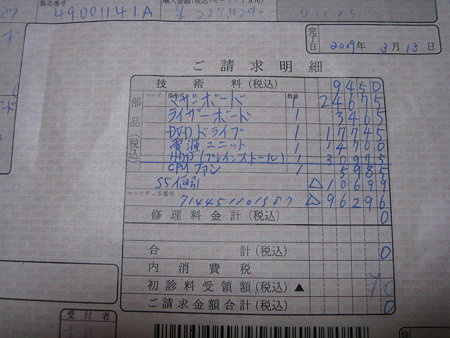 製造番号 49001141A
完了日 2009年 3月13日
ご請求明細
技術料(税込) 9450
部品(税込)
数量
マザーボード 1 24675
ライザーボード 1 3465
DVDドライブ 1 17745
電源ユニット 1 14700
HDD(プレインストール) 1 30975
CPUファン 1 5985
SS値引 △10699
△96296
修理料金計(税込) 0
合計(税込) 0
内消費税
初診料受領額(税込) ▲
ご請求金額合計(税込) 0
受付者